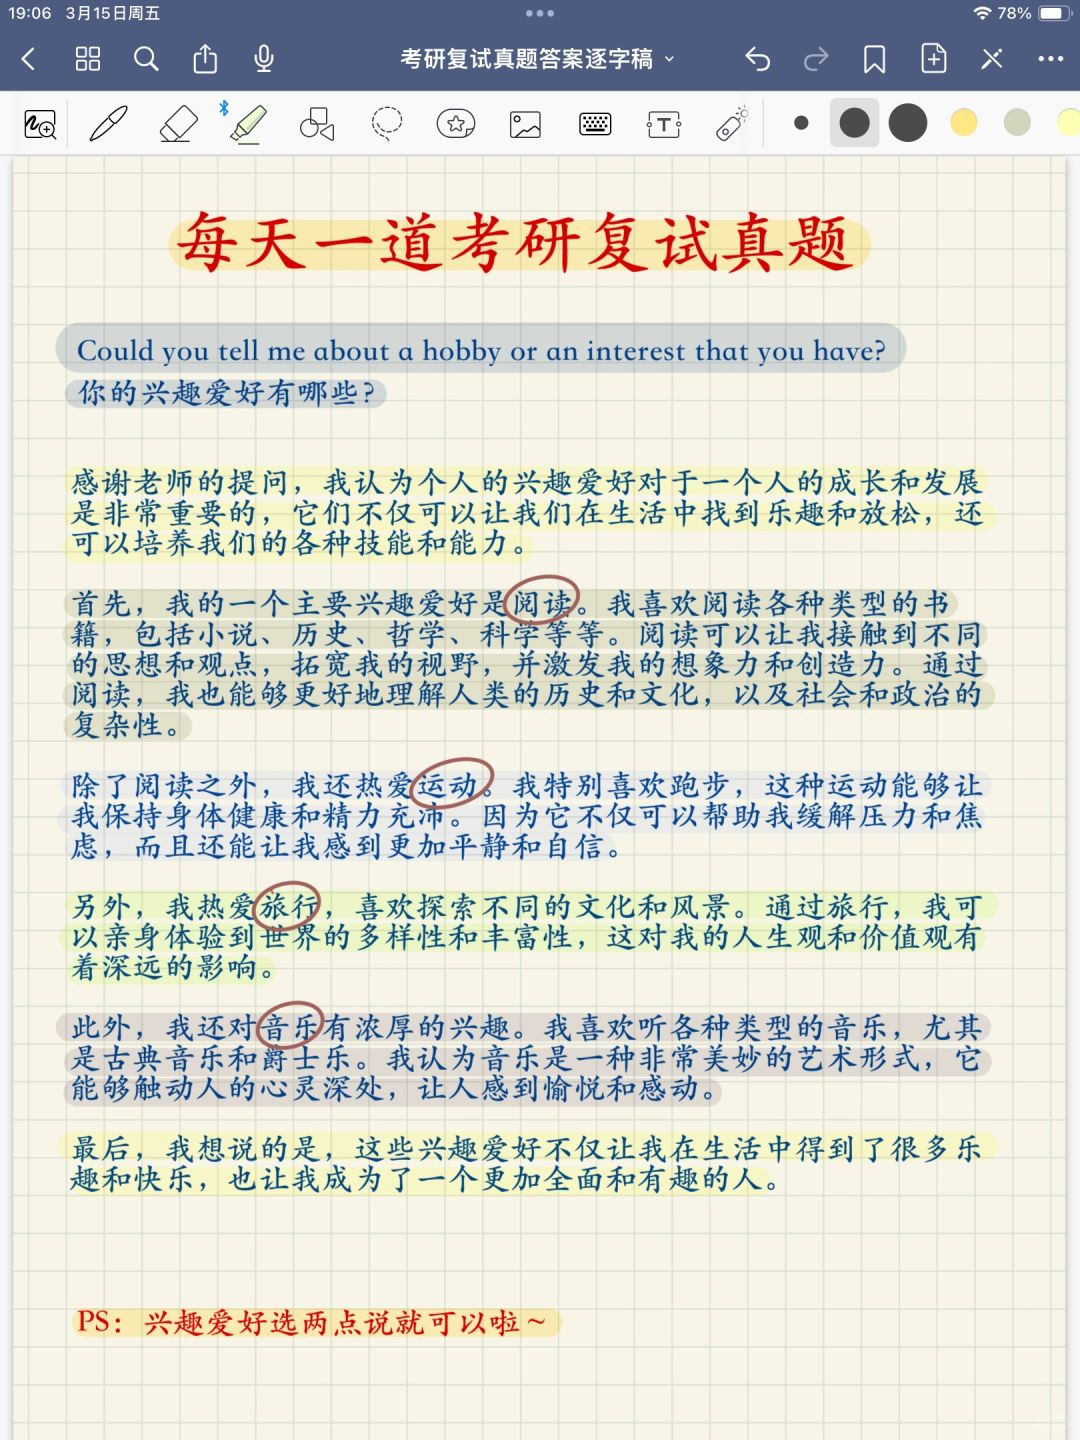 19:06 3月15日周五
78%
考研复试真题答案逐字稿
T
每天一道考研复试真题
Could you tell me about a hobby or an interest that you have?
你的兴趣爱好有哪些?
感谢老师的提问，我认为个人的兴趣爱好对于一个人的成长和发展
是非常重要的，它们不仅可以让我们在生活中找到乐趣和放松，还
可以培养我们的各种技能和能力。
首先，我的一个主要兴趣爱好是阅读。我喜欢阅读各种类型的书
籍，包括小说、历史、哲学、科学等等。阅读可以让我接触到不同
的思想和观点，拓宽我的视野，并激发我的想象力和创造力。通过
阅读，我也能够更好地理解人类的历史和文化，以及社会和政治的
复杂性。
除了阅读之外，我还热爱运动。我特别喜欢跑步，这种运动能够让
我保持身体健康和精力充沛。因为它不仅可以帮助我缓解压力和焦
虑，而且还能让我感到更加平静和自信。
另外，我热爱旅行，喜欢探索不同的文化和风景。通过旅行，我可
以亲身体验到世界的多样性和丰富性，这对我的人生观和价值观有
着深远的影响。
此外，我还对音乐有浓厚的兴趣。我喜欢听各种类型的音乐，尤其
是古典音乐和爵士乐。我认为音乐是一种非常美妙的艺术形式，它
能够触动人的心灵深处，让人感到愉悦和感动。
最后，我想说的是，这些兴趣爱好不仅让我在生活中得到了很多乐
趣和快乐，也让我成为了一个更加全面和有趣的人。
PS：兴趣爱好选两点说就可以啦~